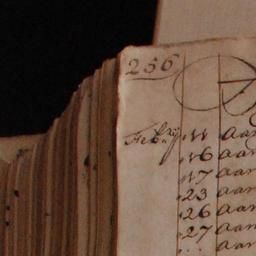 256
Febry 11 Aan
16 Aan
17 Aan
23 Aan
26 Aan
27 Aan
Aan